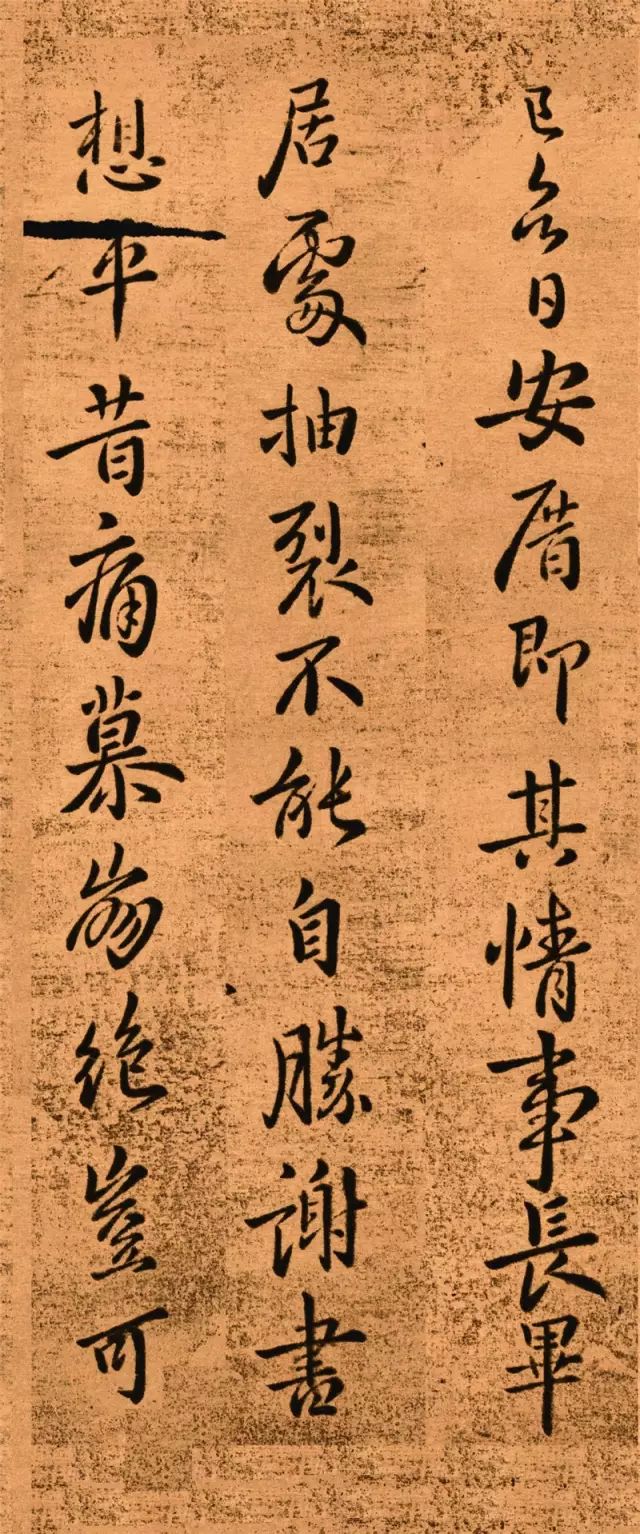 想平昔痛慕崩絕豈可
居處抽裂不能自勝謝書
已日安厝即其情事長畢